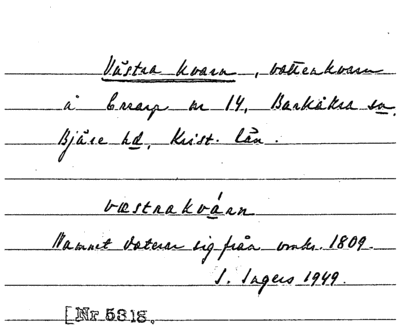 Västra kvarn, vattenkvarn
å Errarp nr 14, Barkåkra sn,
Bjäre hd, Krist. län.
væstrakvárn
Namnet daterar sig från omkr. 1809.
S. Ingers 1949.
[Nr 5318.